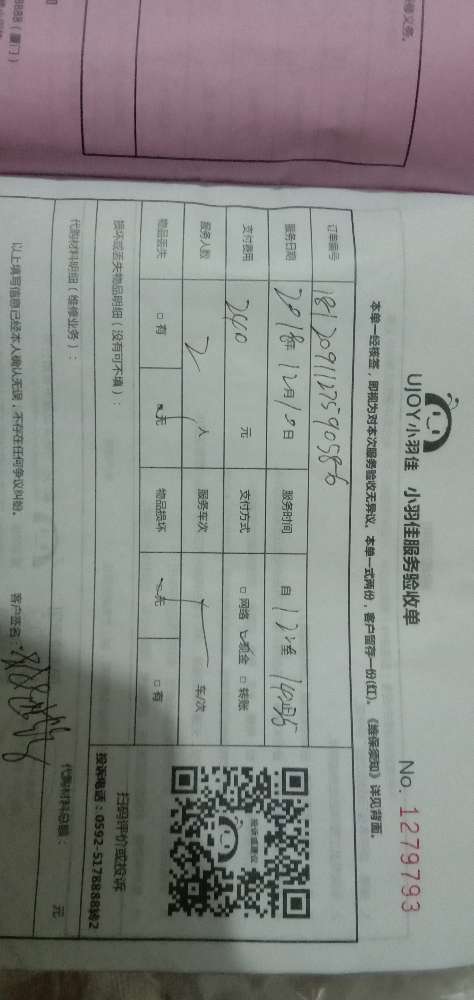 UJOY小羽佳 小羽佳服务验收单
No. 1279793
本单一经核签，即视为对本次服务验收无异议。本单一式两份，客户留存一份(红)。《维保须知》详见背面。
订单编号
服务日期 2018年 12月10日 服务时间 自 12 至 14 止
支付费用 240 元 支付方式 □网络 ☑现金 □转账
服务人数 2 人 服务车次 车/次
物品丢失 □有 ☑无 物品损坏 ☑无 □有
损坏或丢失物品明细（没有可不填）：
投诉或建议
扫码评价或投诉
投诉电话：0592-5178888转2
代购材料明细（维修业务）：
代购材料总额： 元
以上填写信息已经本人确认无误，不存在任何争议纠纷。
客户签名：
8888（厦门）
维修义务。